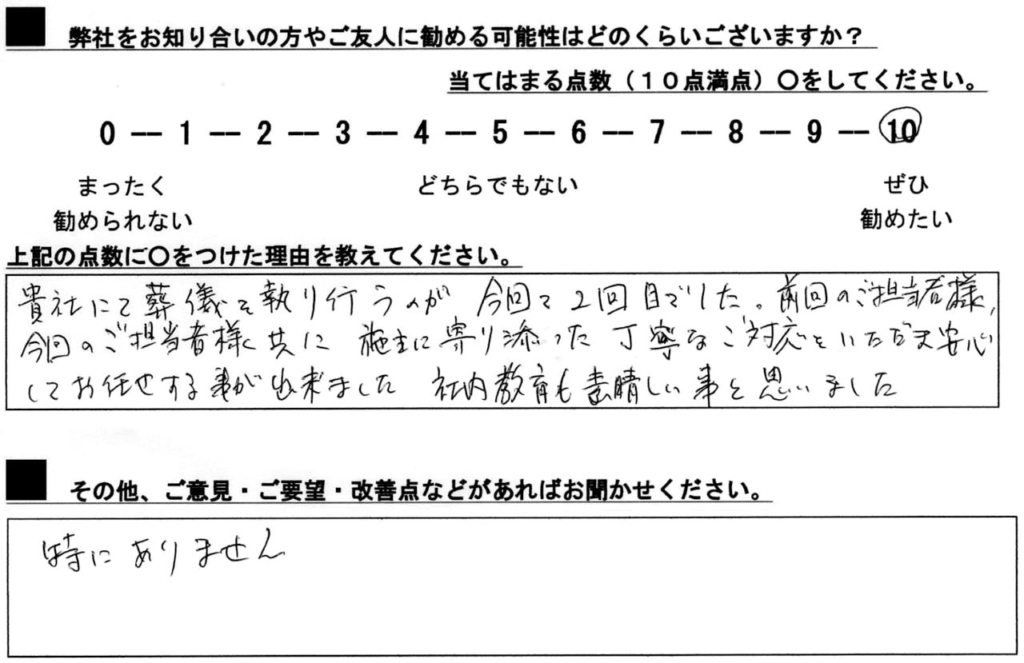 ■ 弊社をお知り合いの方やご友人に勧める可能性はどのくらいございますか？
当てはまる点数（１０点満点）〇をしてください。
0 ― 1 ― 2 ― 3 ― 4 ― 5 ― 6 ― 7 ― 8 ― 9 ― 10
まったく どちらでもない ぜひ
勧められない 勧めたい
上記の点数に〇をつけた理由を教えてください。
貴社にて葬儀を執り行うのが 今回で2回目でした。前回のご担当者様,
今回のご担当者様共に 施主に寄り添った丁寧なご対応をいただき安心
してお任せする事が出来ました 社内教育も素晴しい事と思いました
■ その他、ご意見・ご要望・改善点などがあればお聞かせください。
特にありません